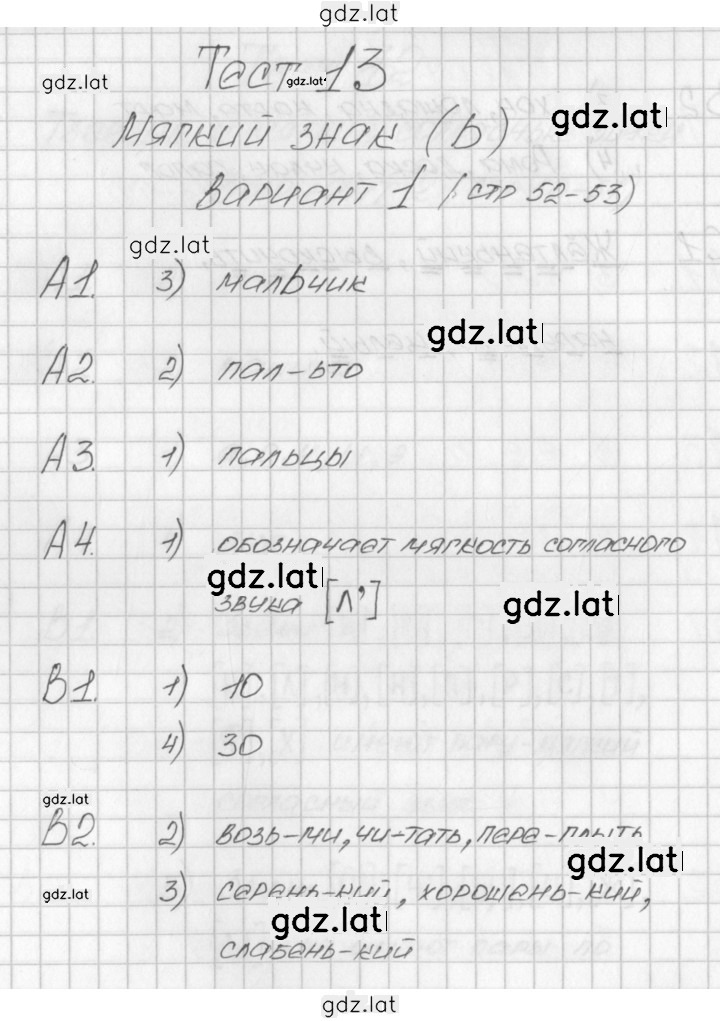 gdz.lat
Тест 13
gdz.lat
gdz.lat
gdz.lat
Мягкий знак (ь)
Вариант 1 (стр 52-53)
gdz.lat
А1. 3) мальчик
gdz.lat
А2. 2) пал-ьто
А3. 1) пальцы
А4. 1) обозначает мягкость согласного
gdz.lat
звука [л']
gdz.lat
В1. 1) 10
4) 30
gdz.lat
В2. 2) возь-ми, чи-тать, пере-плыть
gdz.lat
gdz.lat
3) серень-кий, хорошень-кий,
gdz.lat
слабень-кий
gdz.lat